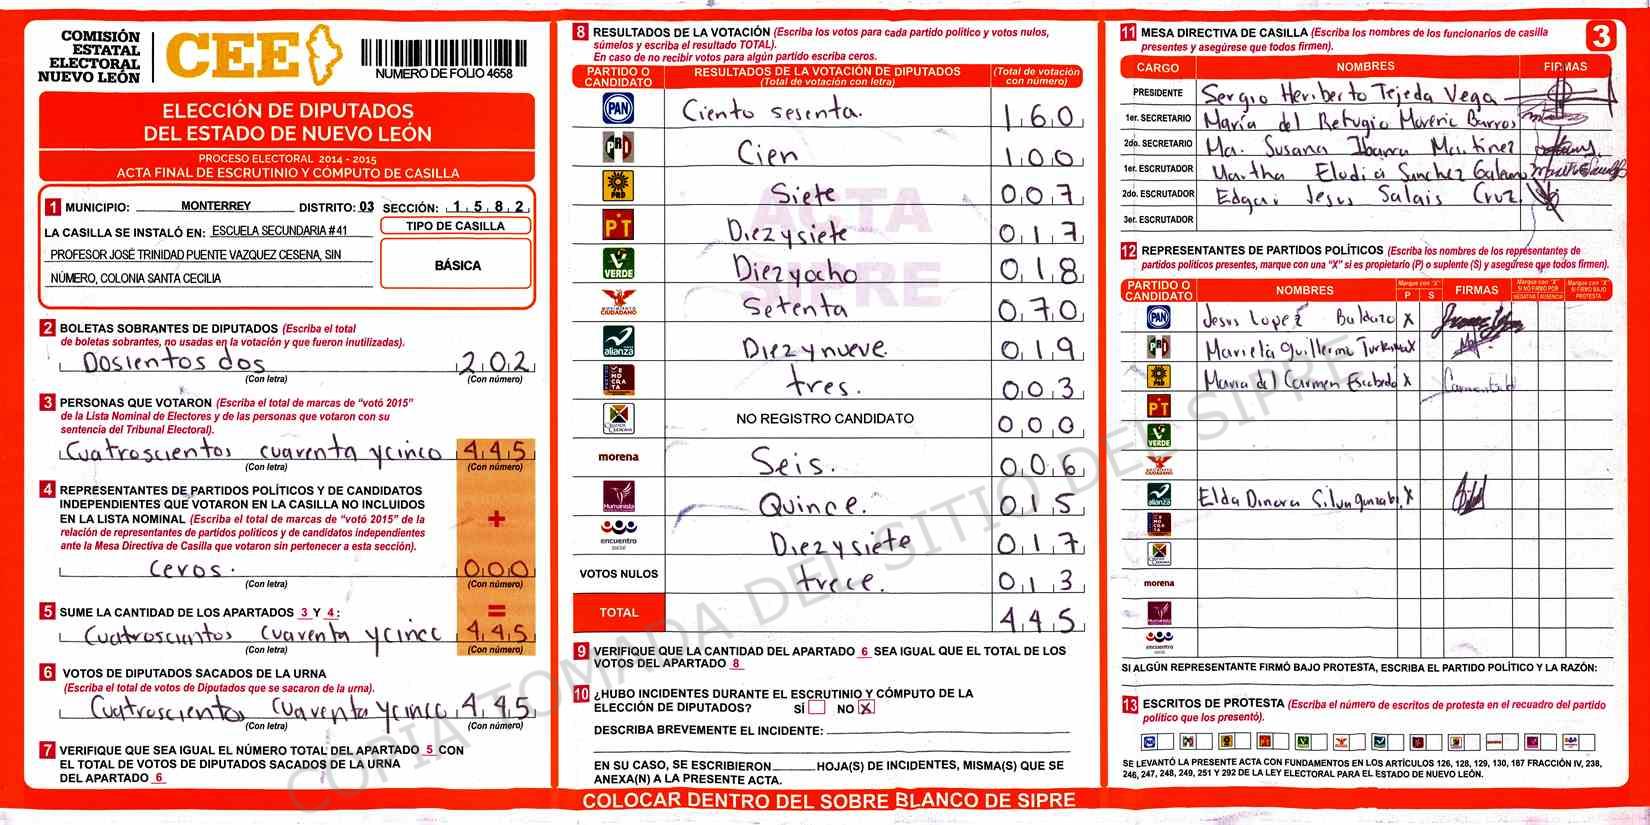 COMISIÓN
ESTATAL
ELECTORAL
NUEVO LEÓN
CEE
NUMERO DE FOLIO 4658
ELECCIÓN DE DIPUTADOS
DEL ESTADO DE NUEVO LEÓN
PROCESO ELECTORAL 2014 - 2015
ACTA FINAL DE ESCRUTINIO Y CÓMPUTO DE CASILLA
1 MUNICIPIO: MONTERREY DISTRITO: 03 SECCIÓN: 1582
LA CASILLA SE INSTALÓ EN: ESCUELA SECUNDARIA #41
PROFESOR JOSÉ TRINIDAD PUENTE VAZQUEZ CESENA, SIN
NÚMERO, COLONIA SANTA CECILIA
TIPO DE CASILLA
BÁSICA
2 BOLETAS SOBRANTES DE DIPUTADOS (Escriba el total
de boletas sobrantes, no usadas en la votación y que fueron inutilizadas).
Dosientos dos 202
(Con letra) (Con número)
3 PERSONAS QUE VOTARON (Escriba el total de marcas de "votó 2015"
de la Lista Nominal de Electores y de las personas que votaron con su
sentencia del Tribunal Electoral).
Cuatroscientos cuaventa ycinco 445
(Con letra) (Con número)
4 REPRESENTANTES DE PARTIDOS POLÍTICOS Y DE CANDIDATOS
INDEPENDIENTES QUE VOTARON EN LA CASILLA NO INCLUIDOS
EN LA LISTA NOMINAL (Escriba el total de marcas de "votó 2015" de la
relación de representantes de partidos políticos y de candidatos independientes
ante la Mesa Directiva de Casilla que votaron sin pertenecer a esta sección).
+
Ceros. 000
(Con letra) (Con número)
=
5 SUME LA CANTIDAD DE LOS APARTADOS 3 Y 4:
Cuatroscientos Cuaventa ycinco 445
(Con letra) (Con número)
6 VOTOS DE DIPUTADOS SACADOS DE LA URNA
(Escriba el total de votos de Diputados que se sacaron de la urna).
Cuatroscientos Cuaventa ycinco 445
(Con letra) (Con número)
7 VERIFIQUE QUE SEA IGUAL EL NÚMERO TOTAL DEL APARTADO 5 CON
EL TOTAL DE VOTOS DE DIPUTADOS SACADOS DE LA URNA
DEL APARTADO 6
8 RESULTADOS DE LA VOTACIÓN (Escriba los votos para cada partido político y votos nulos,
súmelos y escriba el resultado TOTAL).
En caso de no recibir votos para algún partido escriba ceros.
PARTIDO O CANDIDATO RESULTADOS DE LA VOTACIÓN DE DIPUTADOS (Total de votación con letra) (Total de votación con número)
PAN Ciento sesenta. 160
PRI Cien 100
PRD Siete 007
PT Diezysiete 017
VERDE Diezyocho 018
MOVIMIENTO CIUDADANO Setenta 070
alianza Diezynueve. 019
DEMOCRATA tres. 003
CRUZADA CIUDADANA NO REGISTRO CANDIDATO 000
morena Seis. 006
Humanista Quince. 015
encuentro social Diezysiete 017
VOTOS NULOS trece. 013
TOTAL 445
ACTA
SIPRE
9 VERIFIQUE QUE LA CANTIDAD DEL APARTADO 6 SEA IGUAL QUE EL TOTAL DE LOS
VOTOS DEL APARTADO 8
10 ¿HUBO INCIDENTES DURANTE EL ESCRUTINIO Y CÓMPUTO DE LA
ELECCIÓN DE DIPUTADOS? SÍ NO X
DESCRIBA BREVEMENTE EL INCIDENTE:
EN SU CASO, SE ESCRIBIERON HOJA(S) DE INCIDENTES, MISMA(S) QUE SE
ANEXA(N) A LA PRESENTE ACTA.
COLOCAR DENTRO DEL SOBRE BLANCO DE SIPRE
11 MESA DIRECTIVA DE CASILLA (Escriba los nombres de los funcionarios de casilla
presentes y asegúrese que todos firmen).
3
CARGO NOMBRES FIRMAS
PRESIDENTE Sergio Heriberto Tejeda Vega
1er. SECRETARIO María del Refugio Barros
2do. SECRETARIO Ma. Susana Ibarra Martinez
1er. ESCRUTADOR Martha Elodia Sanchez
2do. ESCRUTADOR Edgar Jesus Salais Cruz
3er. ESCRUTADOR
12 REPRESENTANTES DE PARTIDOS POLÍTICOS (Escriba los nombres de los representantes de
partidos políticos presentes, marque con una "X" si es propietario (P) o suplente (S) y asegúrese que todos firmen).
PARTIDO O CANDIDATO NOMBRES Marque con "X" P S FIRMAS Marque con "X" SI NO FIRMO POR NEGATIVA AUSENCIA Marque con "X" SI FIRMO BAJO PROTESTA
PAN Jesus Lopez X
PRI Mariela Guillermo X
PRD Maria del Carmen Escobedo X
PT
VERDE
CIUDADANO
alianza Elda X
morena
Humanista
encuentro social
SI ALGÚN REPRESENTANTE FIRMÓ BAJO PROTESTA, ESCRIBA EL PARTIDO POLÍTICO Y LA RAZÓN:
13 ESCRITOS DE PROTESTA (Escriba el número de escritos de protesta en el recuadro del partido
político que los presentó).
SE LEVANTÓ LA PRESENTE ACTA CON FUNDAMENTOS EN LOS ARTÍCULOS 126, 128, 129, 130, 187 FRACCIÓN IV, 238,
246, 247, 248, 249, 251 Y 292 DE LA LEY ELECTORAL PARA EL ESTADO DE NUEVO LEÓN.
COPIA TOMADA DEL SITIO DEL SIPRE